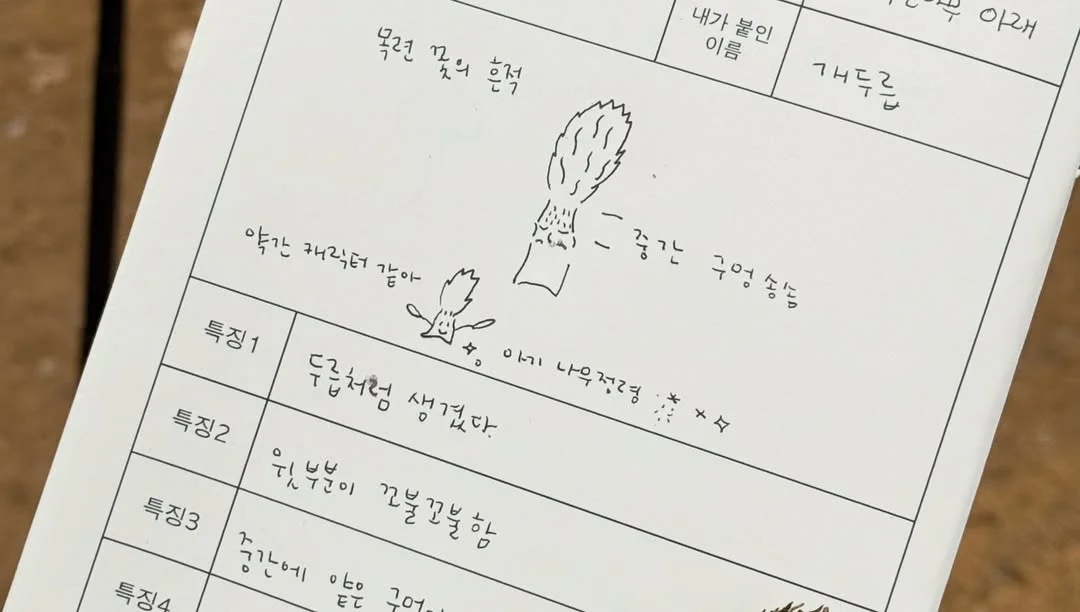 아래
내가 붙인
이름
개두릅
목련 꽃의 흔적
중간 구멍 송송
약간 캐릭터 같아
아기 나무정령
특징1
두릅처럼 생겼다.
특징2
윗부분이 꼬불꼬불함
특징3
중간에 얇은
특징4